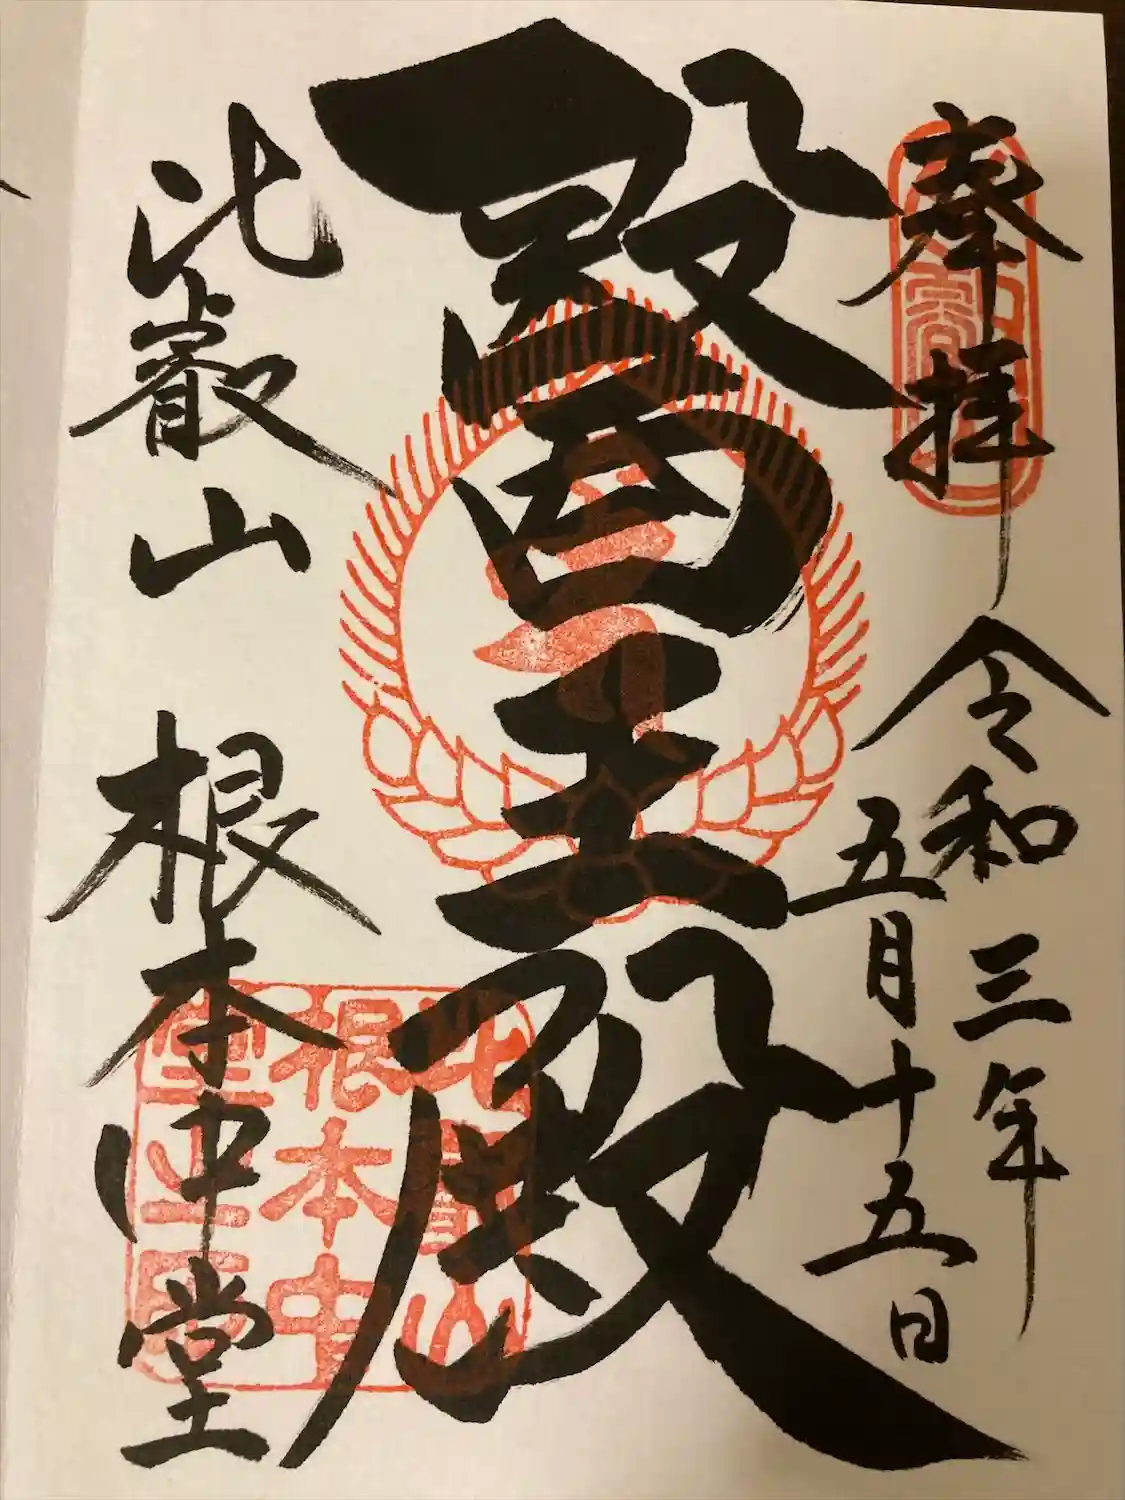 奉拝
令和三年
五月十五日
醫王殿
比叡山 根本中堂
比叡山
根本中
堂之印